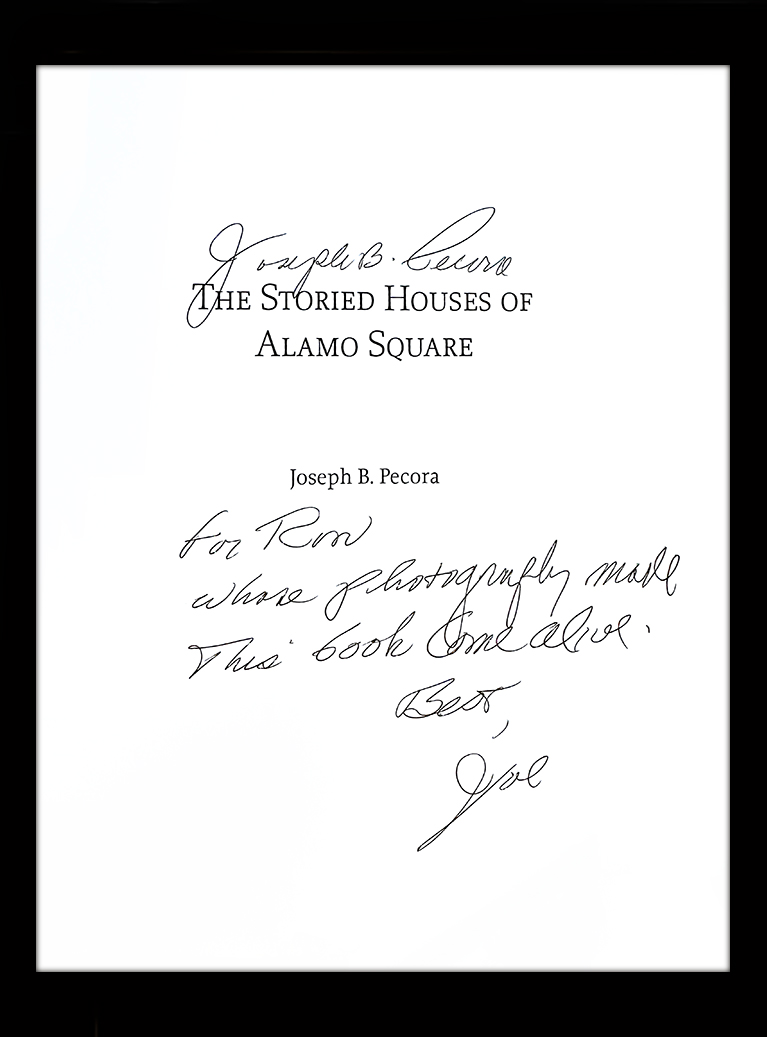 Joseph B. Pecora
THE STORIED HOUSES OF
ALAMO SQUARE
Joseph B. Pecora
For Ron
whose photography made
This book Come alive.
Best,
Joe